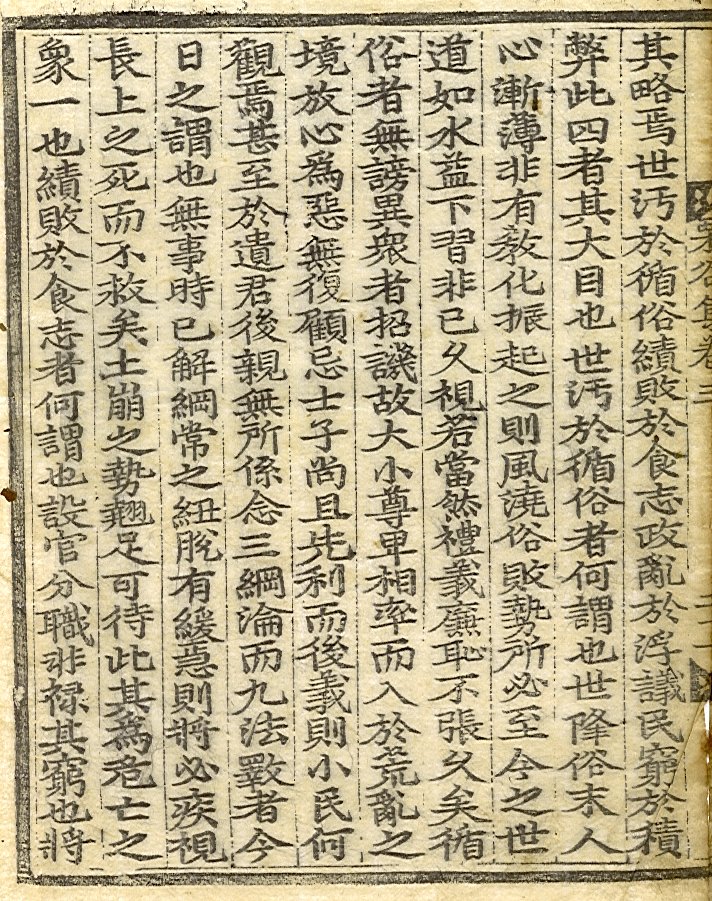 其略焉世汚於循俗績敗於食志政亂於浮議民窮於積
弊此四者其大目也世汚於循俗者何謂也世降俗末人
心漸薄非有敎化振起之則風澆俗敗勢所必至今之世
道如水益下習非已久視若當然禮義廉恥不張久矣循
俗者無謗異衆者招譏故大小尊卑相率而入於荒亂之
境放心爲惡無復顧忌士子尚且先利而後義則小民何
觀焉甚至於遺君後親無所係念三綱淪而九法斁者今
日之謂也無事時已解綱常之紐脫有緩急則將必疾視
長上之死而不救矣土崩之勢翹足可待此其爲危亡之
象一也績敗於食志者何謂也設官分職非祿其窮也將